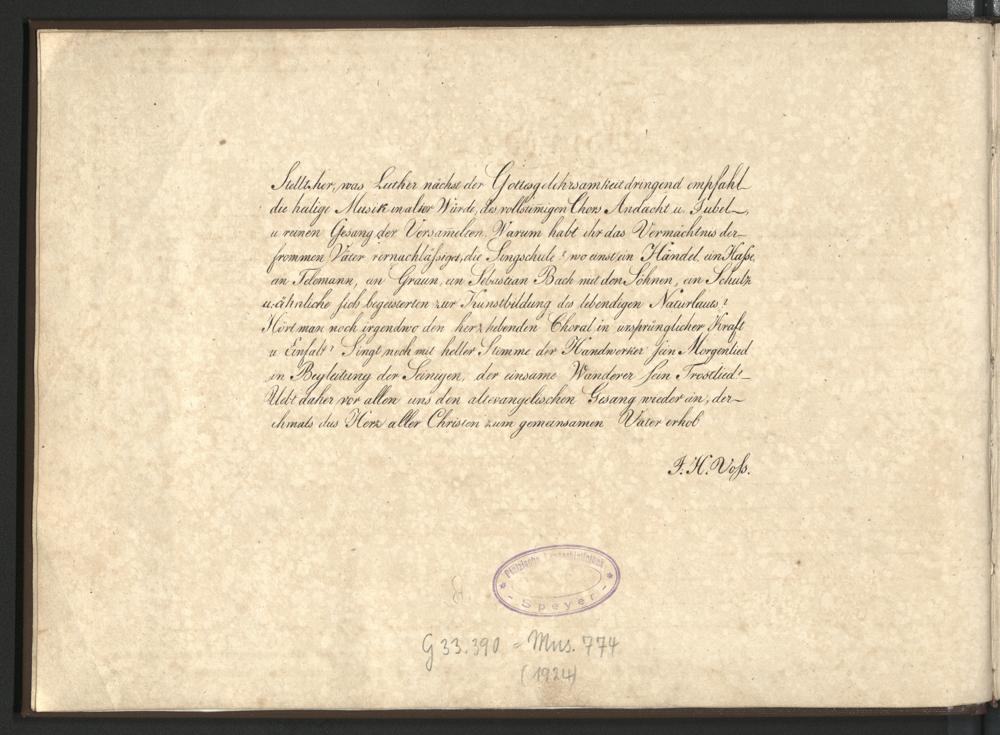 Stellt her, was Luther nächst der Gottesgelehrsamkeit dringend empfahl
die heilige Musik in alter Würde, des vollstimigen Chors Andacht u. Jubel,
u reinen Gesang der Versamelten. Warum habt ihr das Vermächtnis der
frommen Väter vernachläßiget, die Singschule? wo einst ein Händel, ein Haße,
ein Telemann, ein Graun, ein Sebastian Bach mit den Söhnen, ein Schulz
u. ähnliche sich begeisterten zur Kunstbildung des lebendigen Naturlauts?
Hört man noch irgendwo den herzhebenden Choral in ursprünglicher Kraft
u Einfalt? Singt noch mit heller Stimme der Handwerker sein Morgenlied
in Begleitung der Seinigen, der einsame Wanderer sein Trostlied?
Uebt daher vor allen uns den altevangelischen Gesang wieder ein, der
ehmals das Herz aller Christen zum gemeinsamen Vater erhob
J. H. Voſs.
Pfälzische Landesbibliothek
* - Speyer - *
G 33.390 = Mus. 774
(1924)